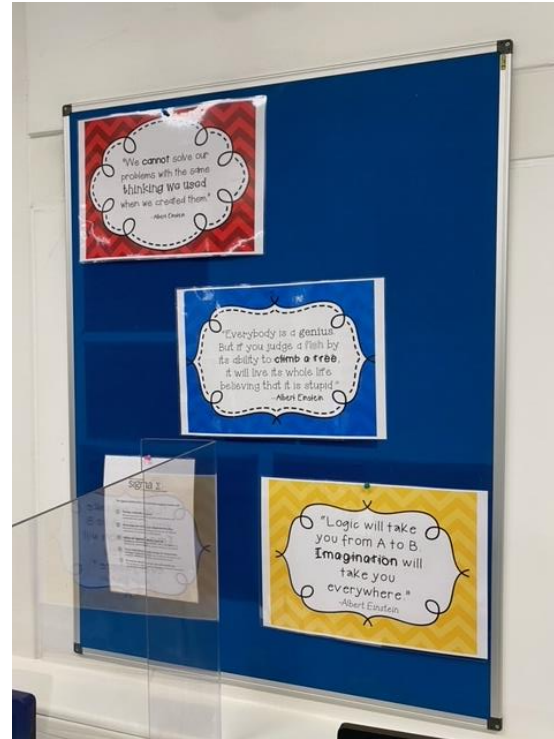 "We cannot solve our
problems with the same
thinking we used
when we created them."
-Albert Einstein
"Everybody is a genius.
But if you judge a fish by
its ability to climb a tree,
it will live its whole life
believing that it is stupid."
-Albert Einstein
sigma Σ
"Logic will take
you from A to B.
Imagination will
take you
everywhere."
-Albert Einstein